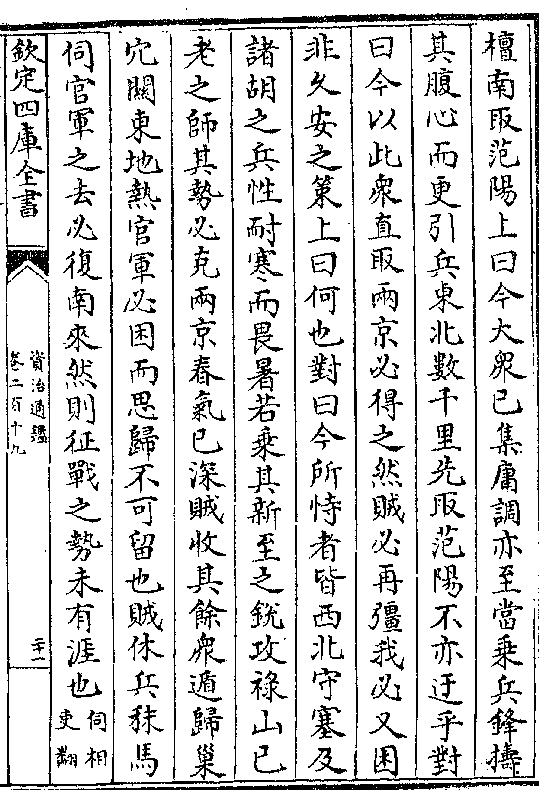 檀南取范陽上曰今大衆已集庸調亦至當乗兵鋒擣
其腹心而更引兵東北數千里先取范陽不亦迂乎對
曰今以此衆直取兩京必得之然賊必再彊我必又困
非久安之策上曰何也對曰今所恃者皆西北守塞及
諸胡之兵性耐寒而畏暑若乗其新至之銳攻祿山已
老之師其勢必克兩京春氣已深賊收其餘衆遁歸巢
穴關東地熱官軍必困而思歸不可留也賊休兵秣馬
伺官軍之去必復南來然則征戰之勢未有涯也伺相
吏翻
欽定四庫全書
資治通鑑
卷二百十九
二十一